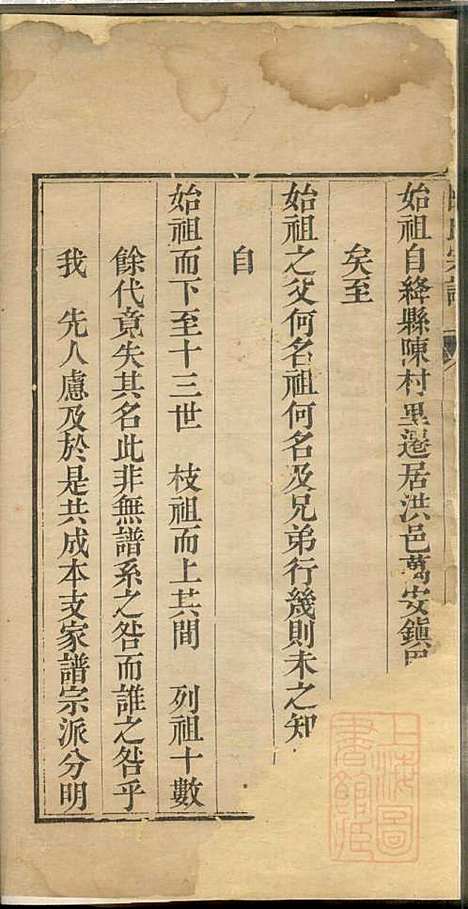 始祖自絳縣陳村里遷居洪邑萬安鎮
矣至
始祖之父何名祖何名及兄弟行幾則未之知
自
始祖而下至十三世　枝祖而上其間　列祖十數
餘代竟失其名此非無譜系之咎而誰之咎乎
我　先人慮及於是共成本支家譜宗派分明
上海圖書館藏